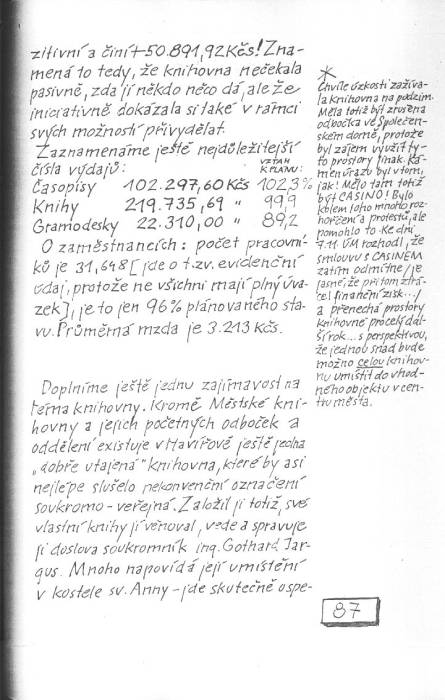 zitivní a činí +50.891,92 Kčs! Zna-
mená to tedy, že knihovna nečekala
pasivně, zda jí někdo něco dá, ale že
iniciativně dokázala si také v rámci
svých možností přivydělat.
Zaznamenáme ještě nejdůležitější
čísla výdajů: VZTAH K PLÁNU:
Časopisy 102.297,60 Kčs 102,3%
Knihy 219.735,69 " 99,9
Gramodesky 22.310,00 " 89,2
O zaměstnancích: počet pracovní-
ků je 31,648 [jde o t.zv. evidenční
údaj, protože ne všichni mají plný úva-
zek], je to jen 96% plánovaného sta-
vu. Průměrná mzda je 3.213 Kčs.
Doplníme ještě jednu zajímavost na
téma knihovny. Kromě Městské kni-
hovny a jejích početných odboček a
oddělení existuje v Havířově ještě jedna
"dobře utajená" knihovna, které by asi
nejlépe slušelo nekonvenční označení
soukromo-veřejná. Založil ji totiž, své
vlastní knihy jí věnoval, vede a spravuje
ji doslova soukromník ing. Gothard Jar-
gus. Mnoho napovídá její umístění
v kostele sv. Anny - jde skutečně ospe-
*
Chvíle úzkosti zažíva-
la knihovna na podzim.
Měla totiž být zrušena
odbočka ve Společen-
ském domě, protože
byl zájem využít ty-
to prostory jinak. Ká-
men úrazu byl v tom,
jak! Mělo tam totiž
být CASINO! Bylo
kolem toho mnoho roz-
hořčení a protestů, ale
pomohlo to. Ke dni
7.11. ÚM rozhodl, že
smlouvu s CASINEM
zatím odmítne /je
jasné, že přitom ztrá-
cel finanční zisk.../
a přenechá prostory
knihovně pro celý dal-
ší rok... s perspektivou,
že jednou snad bude
možno celou knihov-
nu umístit do vhod-
ného objektu v cen-
tru města.
87